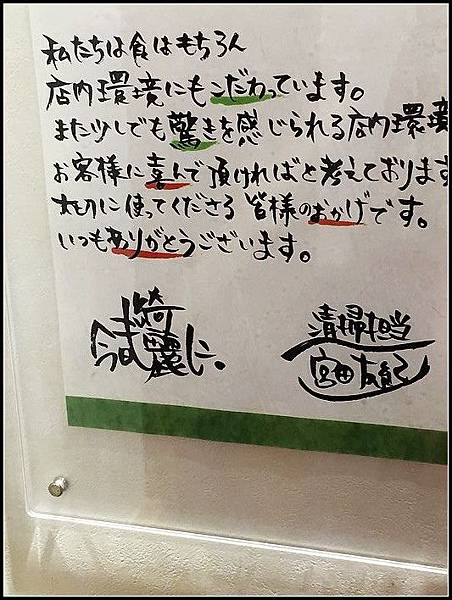 私たちは食はもちろん
店内環境にもこだわっています。
また少しでも驚きを感じられる店内環境
お客様に喜んで頂ければと考えております
大切に使ってくださる皆様のおかげです。
いつもありがとうございます。
今日も綺麗に。
清掃担当
宮田